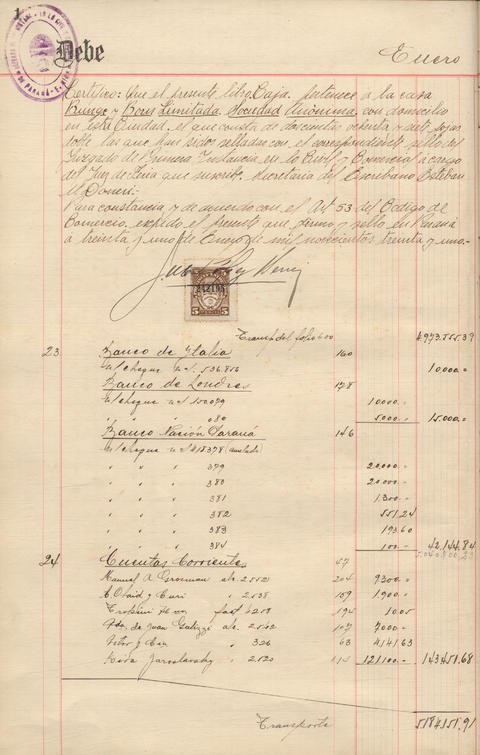 1
Debe
Enero
Certifico: Que el presente libro Caja. pertenece á la casa
Bunge y Born Limitada. Sociedad Anónima, con domicilio
en esta Ciudad, el que consta de doscientas ochenta y siete fojas
doble las que han sidos selladas con el correspondiente sello del
Juzgado de Primera Instancia en lo Civil y Comercial á cargo
del Juez de que suscribe. Secretaria del Escribano Esteban
M. Doneri.-
Para constancia y de acuerdo con el Art 53 del Código de
Comercio, expido el presente que firmo y sello en Paraná
a treinta y uno de Enero de mil novecientos treinta y uno.-
242195
5
Transp. del folio 600 4973.555.39
23 Banco de Italia 160
n/ cheque n/. 536.856 10.000.-
Banco de Londres 178
n/ cheque n/. 150079 10000.-
" " 080 5.000.- 15.000.-
Banco Nación Paraná 146
n/ cheque n/ 218378 (anulado)
" " " 379 20.000.-
" " " 380 20.000.-
" " " 381 1.300.-
" " " 382 551.24
" " " 383 193.60
" " " 384 100.- 42.144.84
5.040.700.23
24 Cuentas Corrientes 57
Manuel A. Grosman 2.522 204 9300.-
C. Obaid y Curi " 2538 159 1900.-
fact 6258 194 10.05
de Juan 2542 107 7000.-
y Cia " 326 63 4141.63
Jaroslavsky " 2520 121.100.- 143.451.68
Transporte 5184.151.91